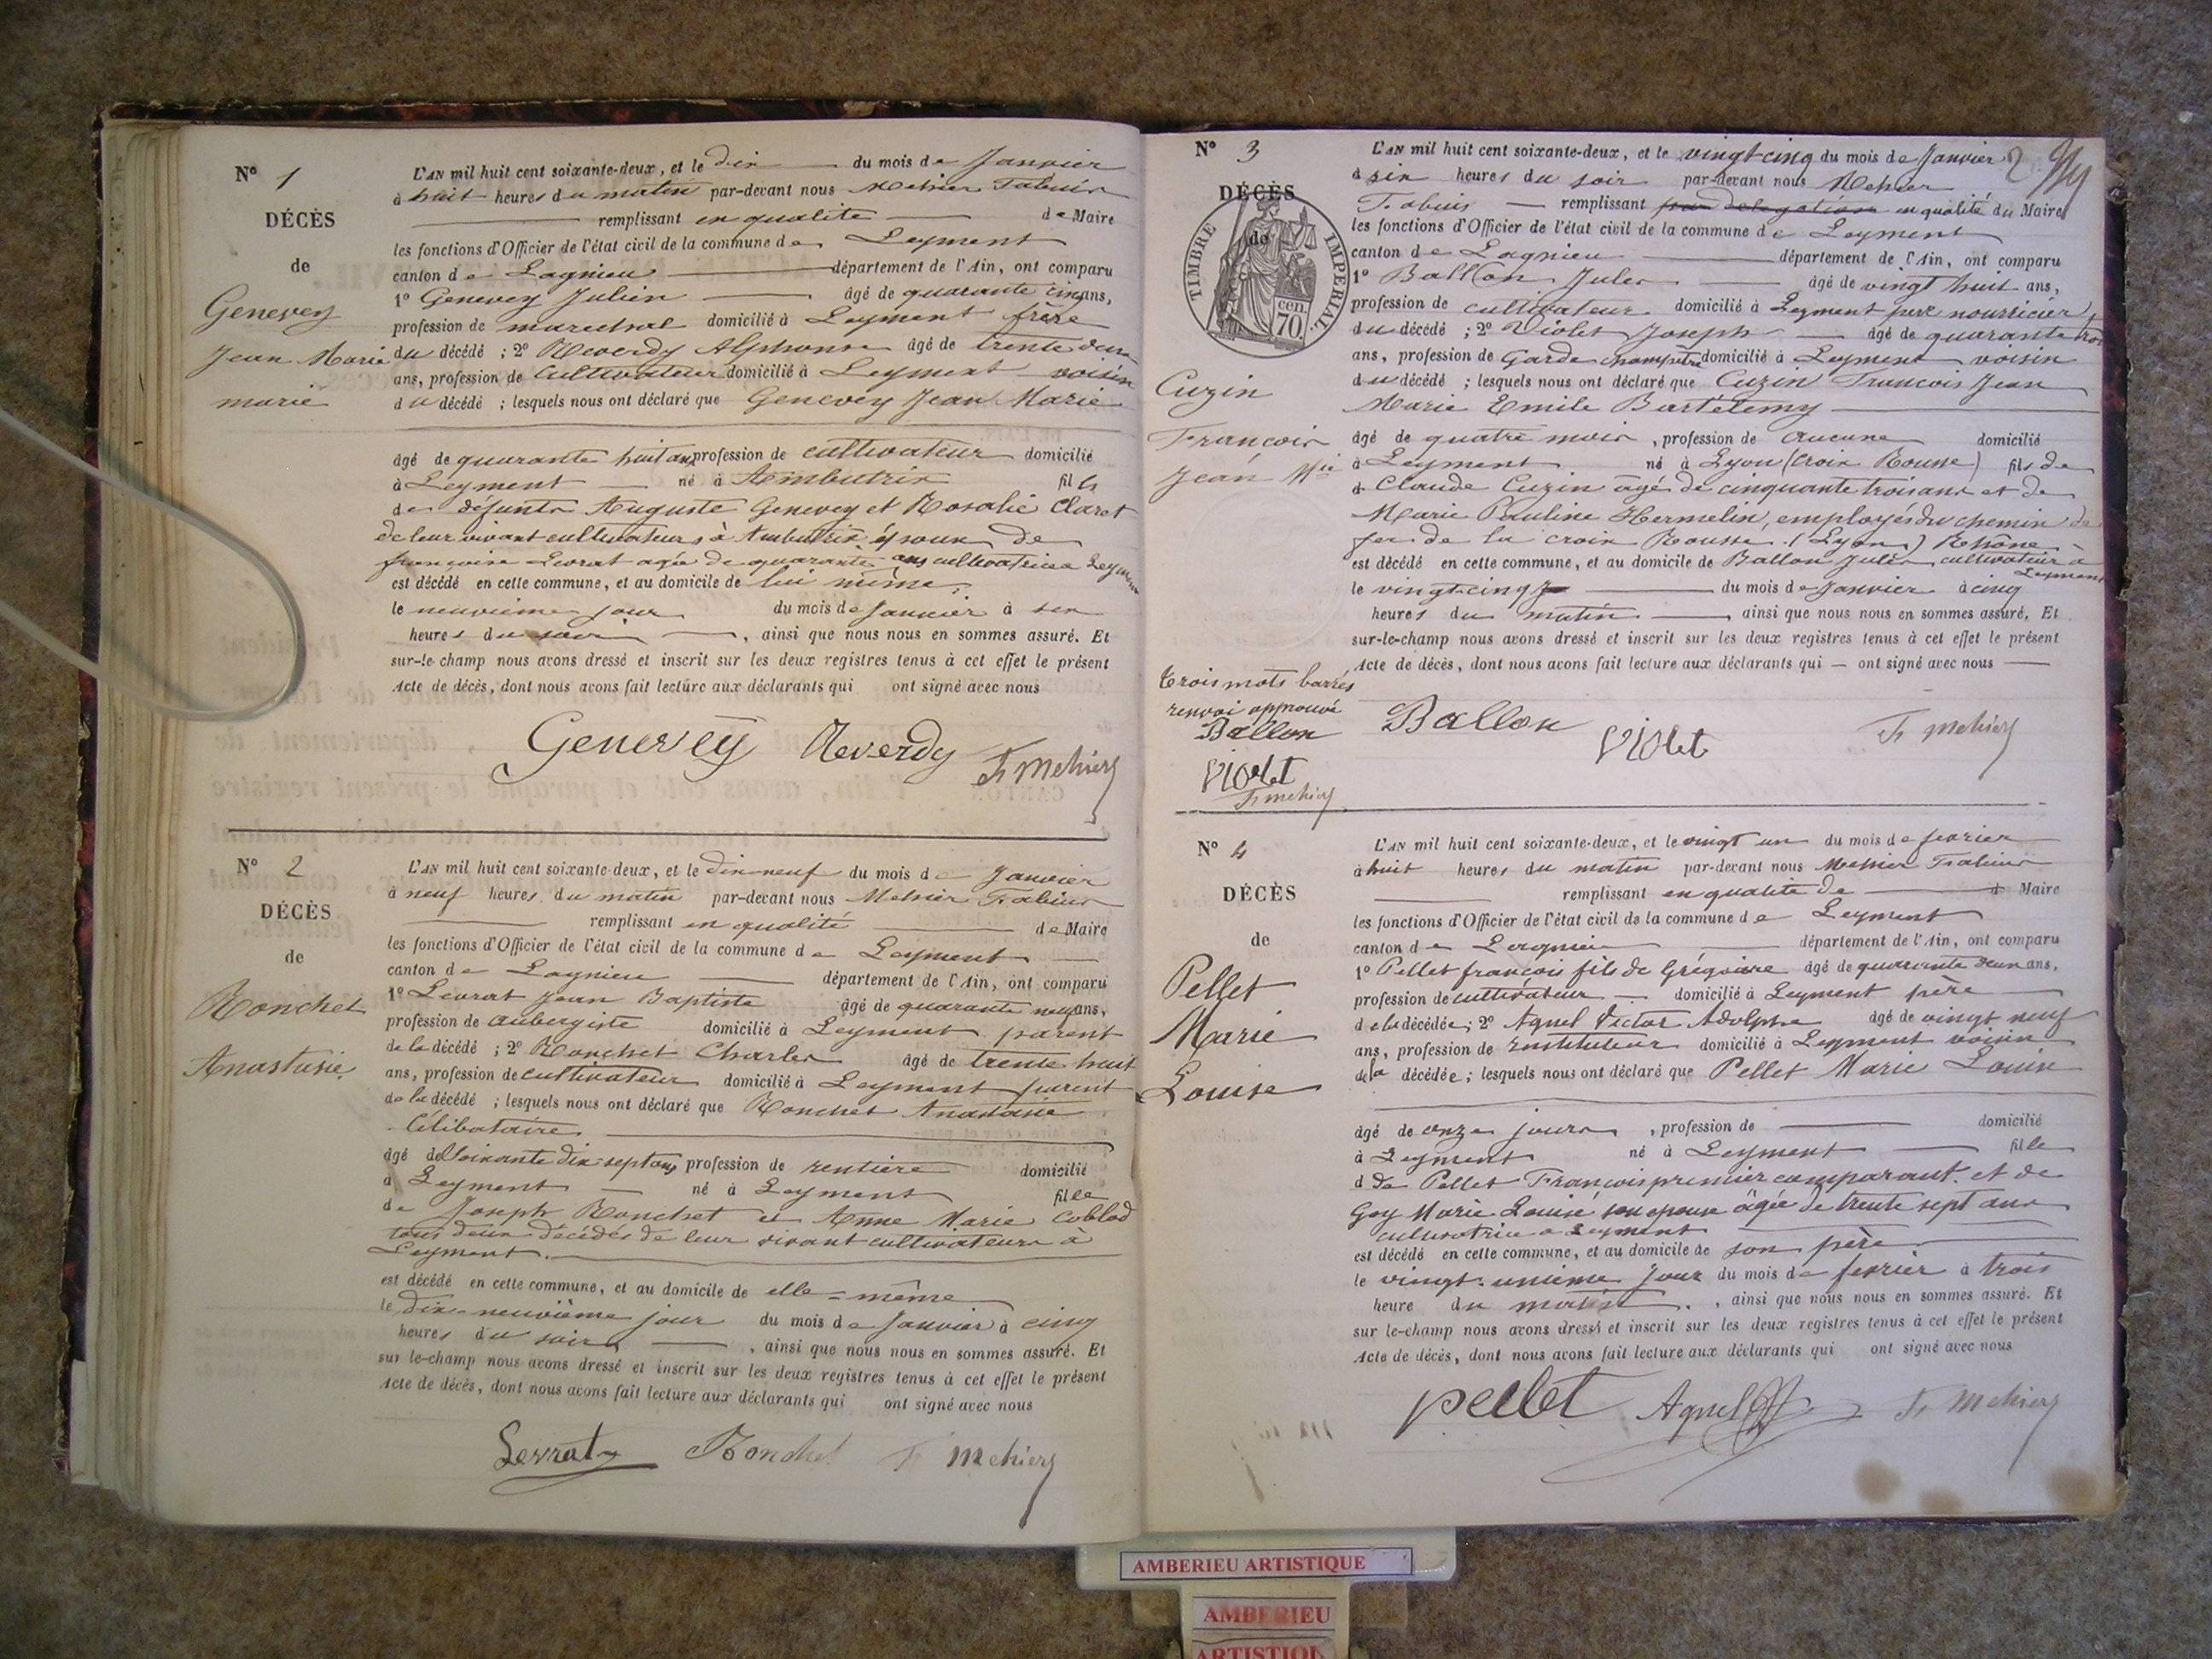 N° 1
DÉCÈS
de
Genevey
Jean Marie
marié
L'AN mil huit cent soixante-deux, et le dix du mois de Janvier
à huit heures du matin par-devant nous Mehier Fabius
remplissant en qualité de Maire
les fonctions d'Officier de l'état civil de la commune de Leyment
canton de Lagnieu département de l'Ain, ont comparu
1° Genevey Julien âgé de quarante cinq ans,
profession de marechal domicilié à Leyment frère
du décédé ; 2° Reverdy Alphonse âgé de trente deux
ans, profession de Cultivateur domicilié à Leyment voisin
du décédé ; lesquels nous ont déclaré que Genevey Jean Marie
âgé de quarante huit ans profession de cultivateur domicilié
à Leyment né à Ambutrix fils
de défunts Auguste Genevey et Rosalie Claret
de leur vivant cultivateurs à Ambutrix époux de
françoise Levrat agée de quarante ans cultivatrice a Leyment
est décédé en cette commune, et au domicile de lui même,
le neuvième jour du mois de Janvier à six
heures du soir, ainsi que nous nous en sommes assuré. Et
sur-le-champ nous avons dressé et inscrit sur les deux registres tenus à cet effet le présent
Acte de décès, dont nous avons fait lecture aux déclarants qui ont signé avec nous
Genevey Reverdy Fs Mehier
N° 2
DÉCÈS
de
Ronchet
Anastasie
L'AN mil huit cent soixante-deux, et le dix-neuf du mois de Janvier
à neuf heures du matin par-devant nous Mehier Fabius
remplissant en qualité de Maire
les fonctions d'Officier de l'état civil de la commune de Leyment
canton de Lagnieu département de l'Ain, ont comparu
1° Levrat Jean Baptiste âgé de quarante neuf ans,
profession de aubergiste domicilié à Leyment parent
de la décédé ; 2° Ronchet Charles âgé de trente huit
ans, profession de cultivateur domicilié à Leyment parent
de la décédé ; lesquels nous ont déclaré que Ronchet Anastasie
Célibataire
âgé de Soixante dix-sept ans profession de rentière domicilié
à Leyment né à Leyment fille
de Joseph Ronchet et Anne Marie Coblod
tous deux décédés de leur vivant cultivateurs à
Leyment.
est décédé en cette commune, et au domicile de elle-même
le dix-neuvième jour du mois de Janvier à cinq
heures du soir, ainsi que nous nous en sommes assuré. Et
sur le-champ nous avons dressé et inscrit sur les deux registres tenus à cet effet le présent
Acte de décès, dont nous avons fait lecture aux déclarants qui ont signé avec nous
Levrat Ronchet Fs Mehier
N° 3
DÉCÈS
de
TIMBRE IMPÉRIAL
70 cen
Cuzin
François
Jean Mie
2
L'AN mil huit cent soixante-deux, et le vingt-cinq du mois de Janvier
à six heures du soir par-devant nous Mehier
Fabius remplissant par delegation en qualité du Maire
les fonctions d'Officier de l'état civil de la commune de Leyment
canton de Lagnieu département de l'Ain, ont comparu
1° Ballon Jules âgé de vingt huit ans,
profession de cultivateur domicilié à Leyment père nourricier
du décédé ; 2° Violet Joseph âgé de quarante trois
ans, profession de Garde champêtre domicilié à Leyment voisin
du décédé ; lesquels nous ont déclaré que Cuzin Francois Jean
Marie Emile Bartélemy
âgé de quatre mois, profession de aucune domicilié
à Leyment né à Lyon (Croix Rousse) fils de
d Claude Cuzin âgé de cinquante trois ans et de
Marie Pauline Hermelin, employés du chemin de
fer de la croix Rousse (Lyon) Rhône
est décédé en cette commune, et au domicile de Ballon Jules cultivateur à
Leyment
le vingt-cinq du mois de Janvier à cinq
heures du matin ainsi que nous nous en sommes assuré. Et
sur-le-champ nous avons dressé et inscrit sur les deux registres tenus à cet effet le présent
Acte de décès, dont nous avons fait lecture aux déclarants qui ont signé avec nous
Trois mots barrés
renvoi approuvé
Ballon
Violet
Fs mehier
Ballon Violet Fs mehier
N° 4
DÉCÈS
de
Pellet
Marie
Louise
L'AN mil huit cent soixante-deux, et le vingt un du mois de fevrier
à huit heures du matin par-devant nous Mehier Fabius
remplissant en qualité de d Maire
les fonctions d'Officier de l'état civil de la commune de Leyment
canton de Lagnieu département de l'Ain, ont comparu
1° Pellet françois fils de Grégoire âgé de quarante deux ans,
profession de cultivateur domicilié à Leyment père
de la décédée ; 2° Agnel Victor Adolphe âgé de vingt neuf
ans, profession de Instituteur domicilié à Leyment voisin
de la décédée ; lesquels nous ont déclaré que Pellet Marie Louise
âgé de onze jours, profession de domicilié
à Leyment né à Leyment fille
d de Pellet François premier comparant et de
Goy Marie Louise son epouse âgée de trente sept ans
cultivatrice a Leyment
est décédé en cette commune, et au domicile de son père
le vingt-unième jour du mois de fevrier à trois
heure du matin, ainsi que nous nous en sommes assuré. Et
sur le-champ nous avons dressé et inscrit sur les deux registres tenus à cet effet le présent
Acte de décès, dont nous avons fait lecture aux déclarants qui ont signé avec nous
pellet Agnel Fs Mehier
AMBERIEU ARTISTIQUE
AMBERIEU
ARTISTIQ